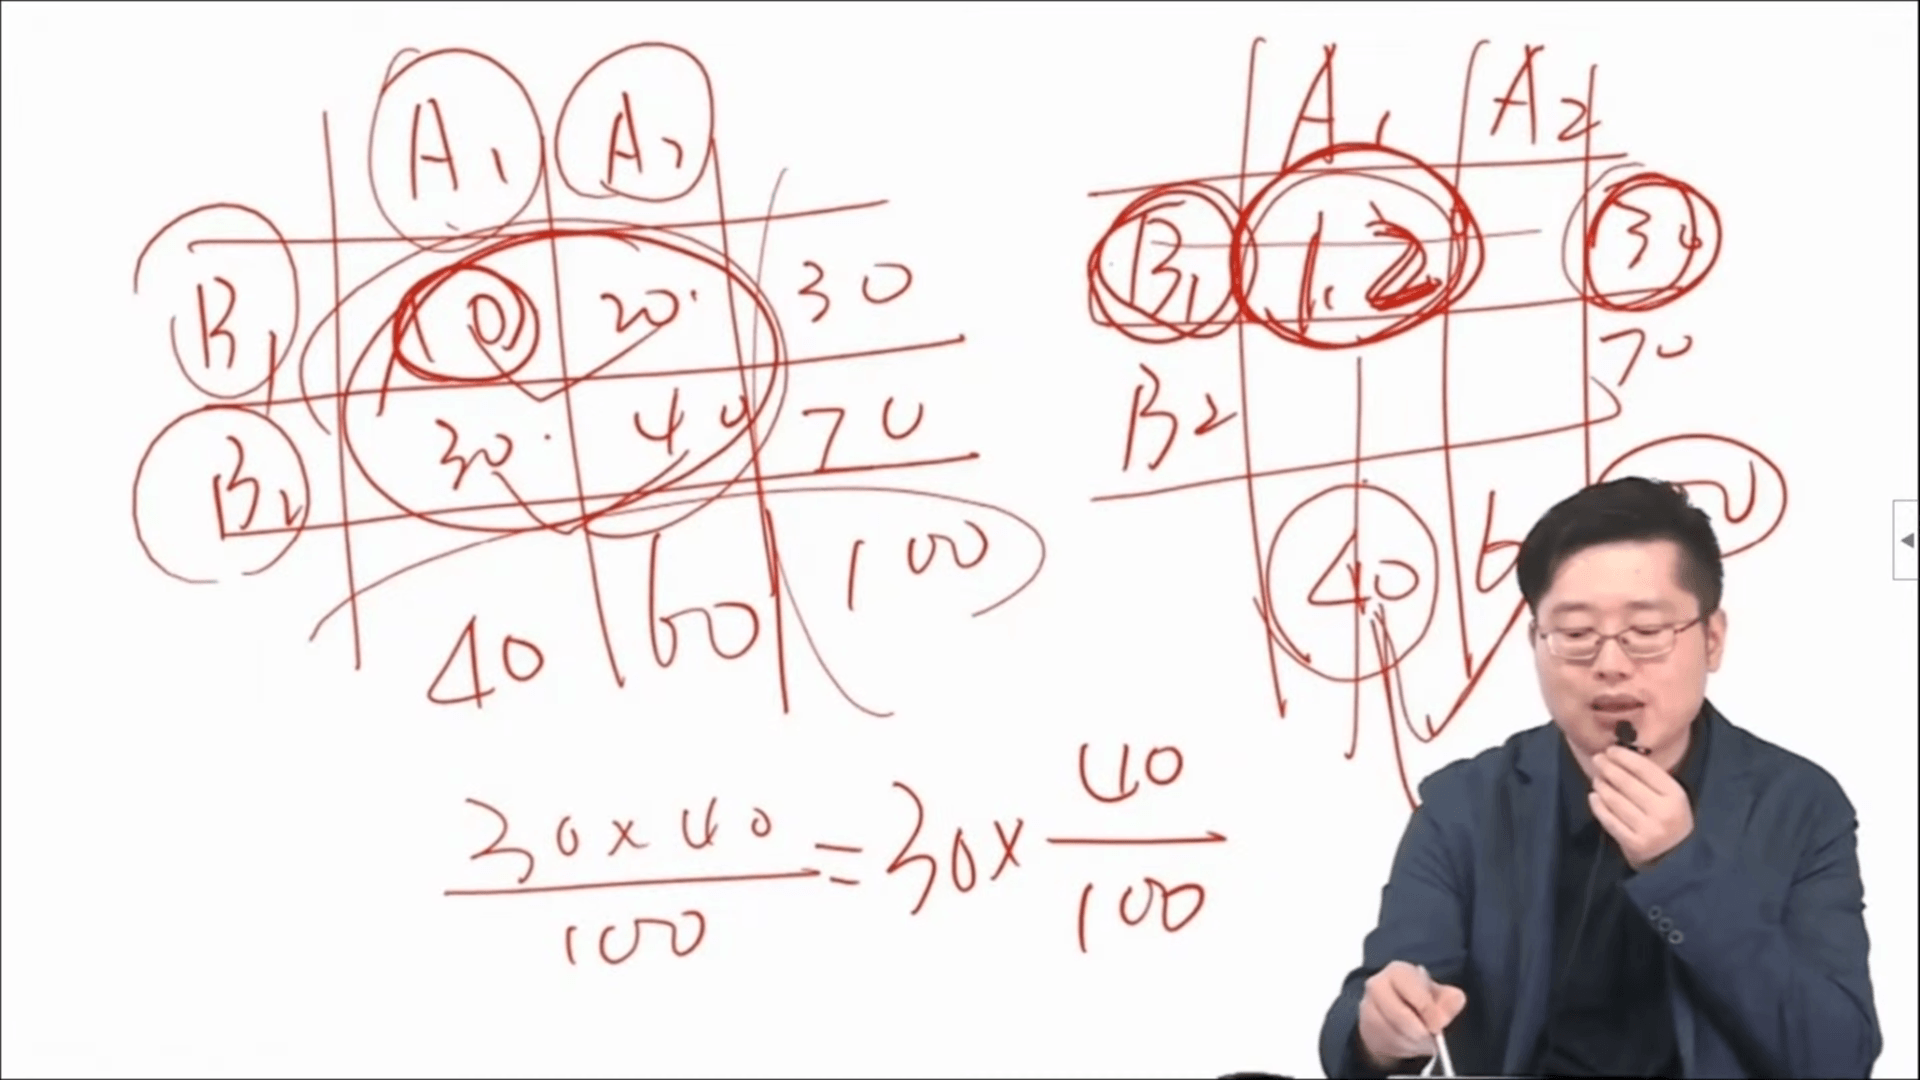 A1 A2
B1 10 20 30
B2 30 40 70
40 60 100
A1 A2
B1 12 30
B2 70
40
30×40/100=30×40/100